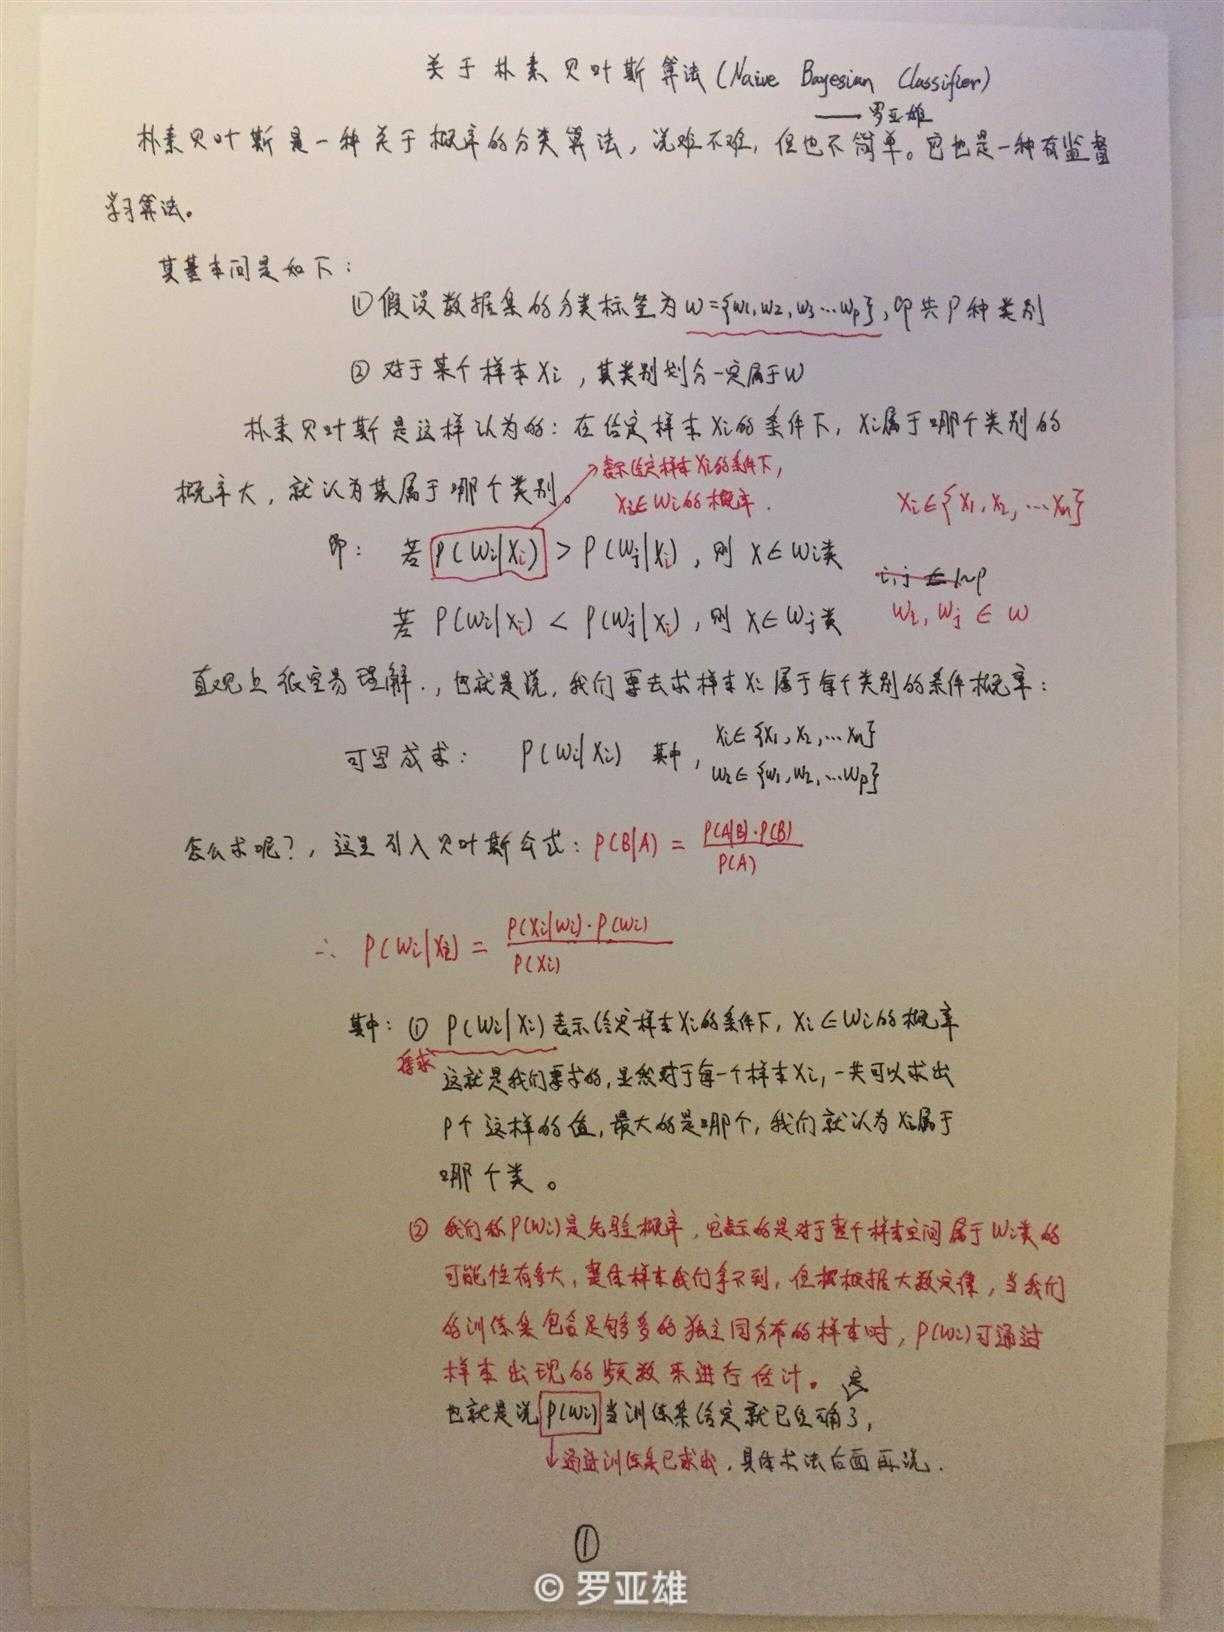 关于朴素贝叶斯算法(Naive Bayesian Classifier)
——罗亚雄
朴素贝叶斯是一种关于概率的分类算法,说难不难,但也不简单。它也是一种有监督
学习算法。
其基本间是如下:
①假设数据集的分类标签为W={w1,w2,w3…wp},即共P种类别
②对于某个样本Xi,其类别划分一定属于W
朴素贝叶斯是这样认为的:在给定样本Xi的条件下,Xi属于哪个类别的
概率大,就认为其属于哪个类别。
表示给定样本Xi的条件下,
Xi∈Wi的概率.
Xi∈{X1,X2,…Xn}
即: 若P(Wi|Xi)>P(Wj|Xi),则X∈Wi类
i,j∈1~P
若P(Wi|Xi)<P(Wj|Xi),则X∈Wj类
Wi,Wj∈W
直观上很容易理解.,也就是说,我们要去求样本Xi属于每个类别的条件概率:
可写成求: P(Wi|Xi) 其中, Xi∈{X1,X2,…Xn}
Wi∈{w1,w2,…wp}
怎么求呢?,这里引入贝叶斯公式:P(B|A)=P(A|B)·P(B)/P(A)
∴ P(Wi|Xi)=P(Xi|Wi)·P(Wi)/P(Xi)
其中:①P(Wi|Xi)表示给定样本Xi的条件下,Xi∈Wi的概率
待求
这就是我们要求的,显然对于每一个样本Xi,一共可以求出
P个这样的值,最大的是哪个,我们就认为Xi属于
哪个类。
②我们称P(Wi)是先验概率,它表示的是对于整个样本空间属于Wi类的
可能性有多大,整体样本我们拿不到,但根据大数定律,当我们
的训练集包含足够多的独立同分布的样本时,P(Wi)可通过
样本出现的频数来进行估计。
也就是说P(Wi)当训练集给定就已经确定了,
↓通过训练集已求出,具体求法后面再说.
①
© 罗亚雄